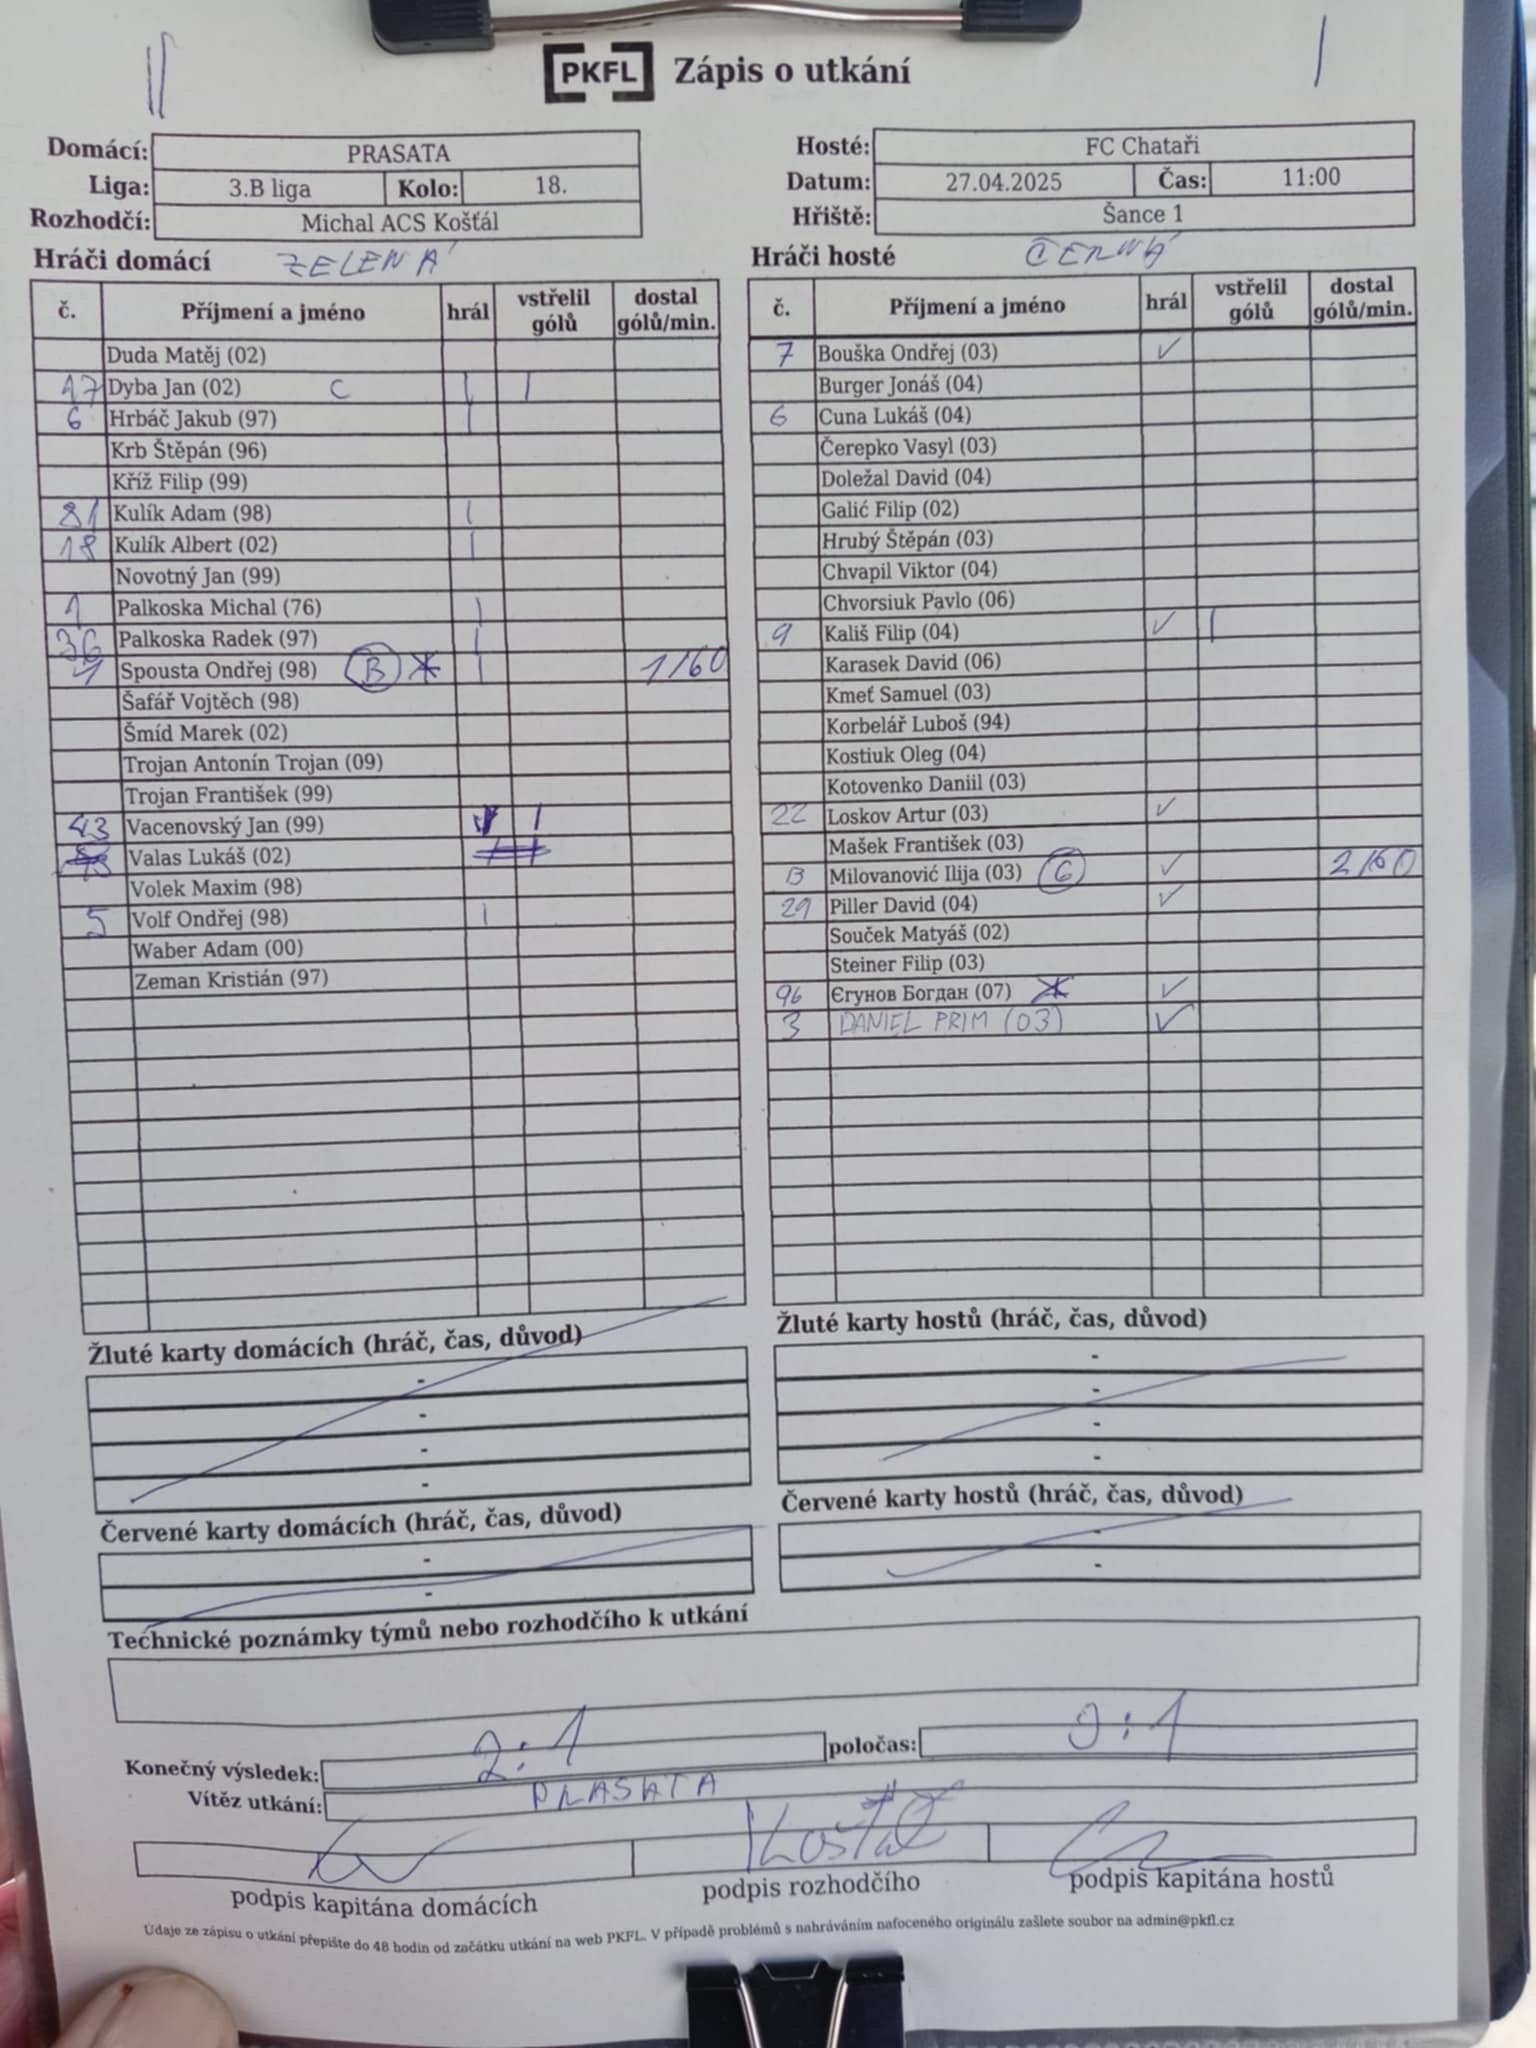 PKFL Zápis o utkání
Domácí: PRASATA
Liga: 3.B liga Kolo: 18.
Rozhodčí: Michal ACS Košťál
Hosté: FC Chataři
Datum: 27.04.2025 Čas: 11:00
Hřiště: Šance 1
Hráči domácí ZELENÁ
č. Příjmení a jméno hrál vstřelil gólů dostal gólů/min.
Duda Matěj (02)
17 Dyba Jan (02) C | |
6 Hrbáč Jakub (97) |
Krb Štěpán (96)
Kříž Filip (99)
81 Kulík Adam (98) |
18 Kulík Albert (02) |
Novotný Jan (99)
1 Palkoska Michal (76) |
36 Palkoska Radek (97) |
Spousta Ondřej (98) B | 1/60
Šafář Vojtěch (98)
Šmíd Marek (02)
Trojan Antonín Trojan (09)
Trojan František (99)
43 Vacenovský Jan (99) |
Valas Lukáš (02)
Volek Maxim (98)
5 Volf Ondřej (98) |
Waber Adam (00)
Zeman Kristián (97)
Hráči hosté ČERNÁ
č. Příjmení a jméno hrál vstřelil gólů dostal gólů/min.
7 Bouška Ondřej (03) ✓
Burger Jonáš (04)
6 Cuna Lukáš (04)
Čerepko Vasyl (03)
Doležal David (04)
Galić Filip (02)
Hrubý Štěpán (03)
Chvapil Viktor (04)
Chvorsiuk Pavlo (06)
9 Kališ Filip (04) ✓ |
Karasek David (06)
Kmeť Samuel (03)
Korbelář Luboš (94)
Kostiuk Oleg (04)
Kotovenko Daniil (03)
22 Loskov Artur (03) ✓
Mašek František (03)
Milovanović Ilija (03) ✓ 2/60
29 Piller David (04) ✓
Souček Matyáš (02)
Steiner Filip (03)
96 Єгунов Богдан (07) ✓
3 DANIEL PRIM (03) ✓
Žluté karty domácích (hráč, čas, důvod)
-
-
-
-
Červené karty domácích (hráč, čas, důvod)
-
-
Žluté karty hostů (hráč, čas, důvod)
-
-
-
-
Červené karty hostů (hráč, čas, důvod)
-
-
Technické poznámky týmů nebo rozhodčího k utkání
Konečný výsledek: 2:1 poločas: 0:1
Vítěz utkání: PRASATA
Košťál
podpis kapitána domácích podpis rozhodčího podpis kapitána hostů
Údaje ze zápisu o utkání přepište do 48 hodin od začátku utkání na web PKFL. V případě problémů s nahráváním nafoceného originálu zašlete soubor na admin@pkfl.cz